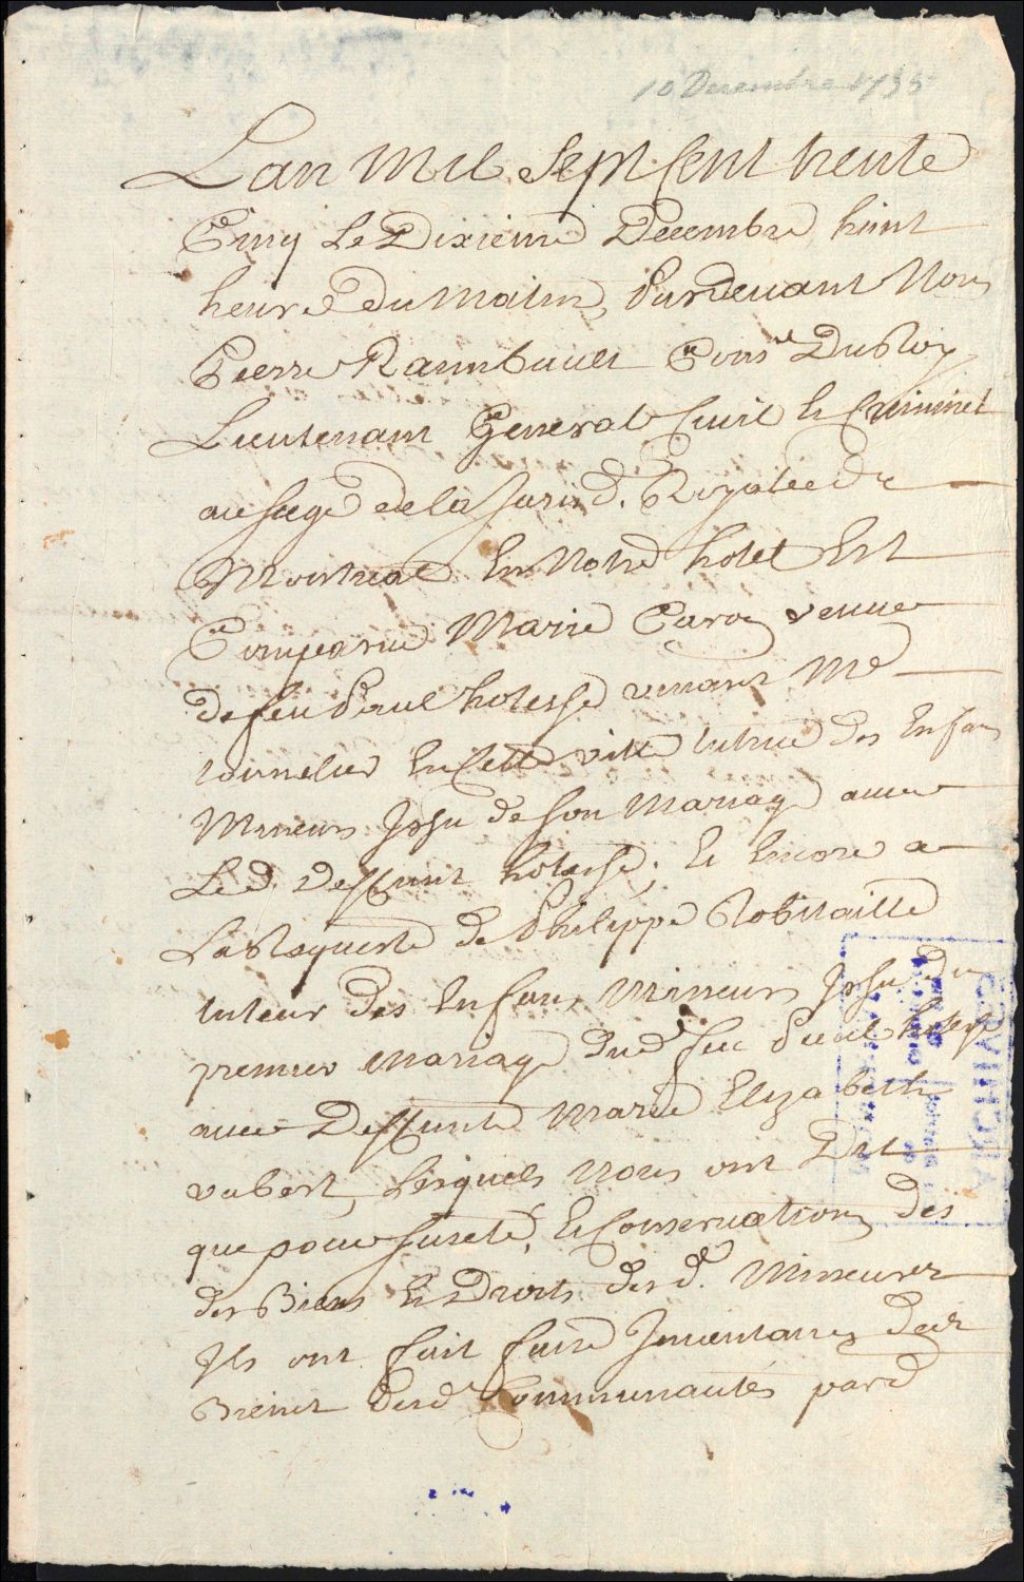 10 Decembre 1735
Lan Mil Sept Cent trente
Cinq Le Dixieme Decembre huit
heure du Matin, Pardevant Nous
Pierre Raimbault Cons.er Du Roy
Lieutenant General Civil et Criminel
au siege de la Jurisd. Royalle de
Montreal En Notre hotel Est
Comparue Marie Caron veuve
de feu Paul hotesse vivant Me
tonnelier En Cette ville tutrice des Enfans
Mineurs Issu de son Mariage avec
Led. deffunt hotesse, Et Encore a
La Requeste de Philippe Robitaille
tuteur des Enfans Mineurs Issu du
premier mariage dud feu Paul hotesse
avec Deffunte Marie Elizabeth
vabert, Lesquels Nous ont Dit
que pour sureté, Et Conservation Des
des Biens Et Droits des d. Mineurs
Ils ont fait faire Inventaires des
Biens desd Communautés pard
ARCHIVES